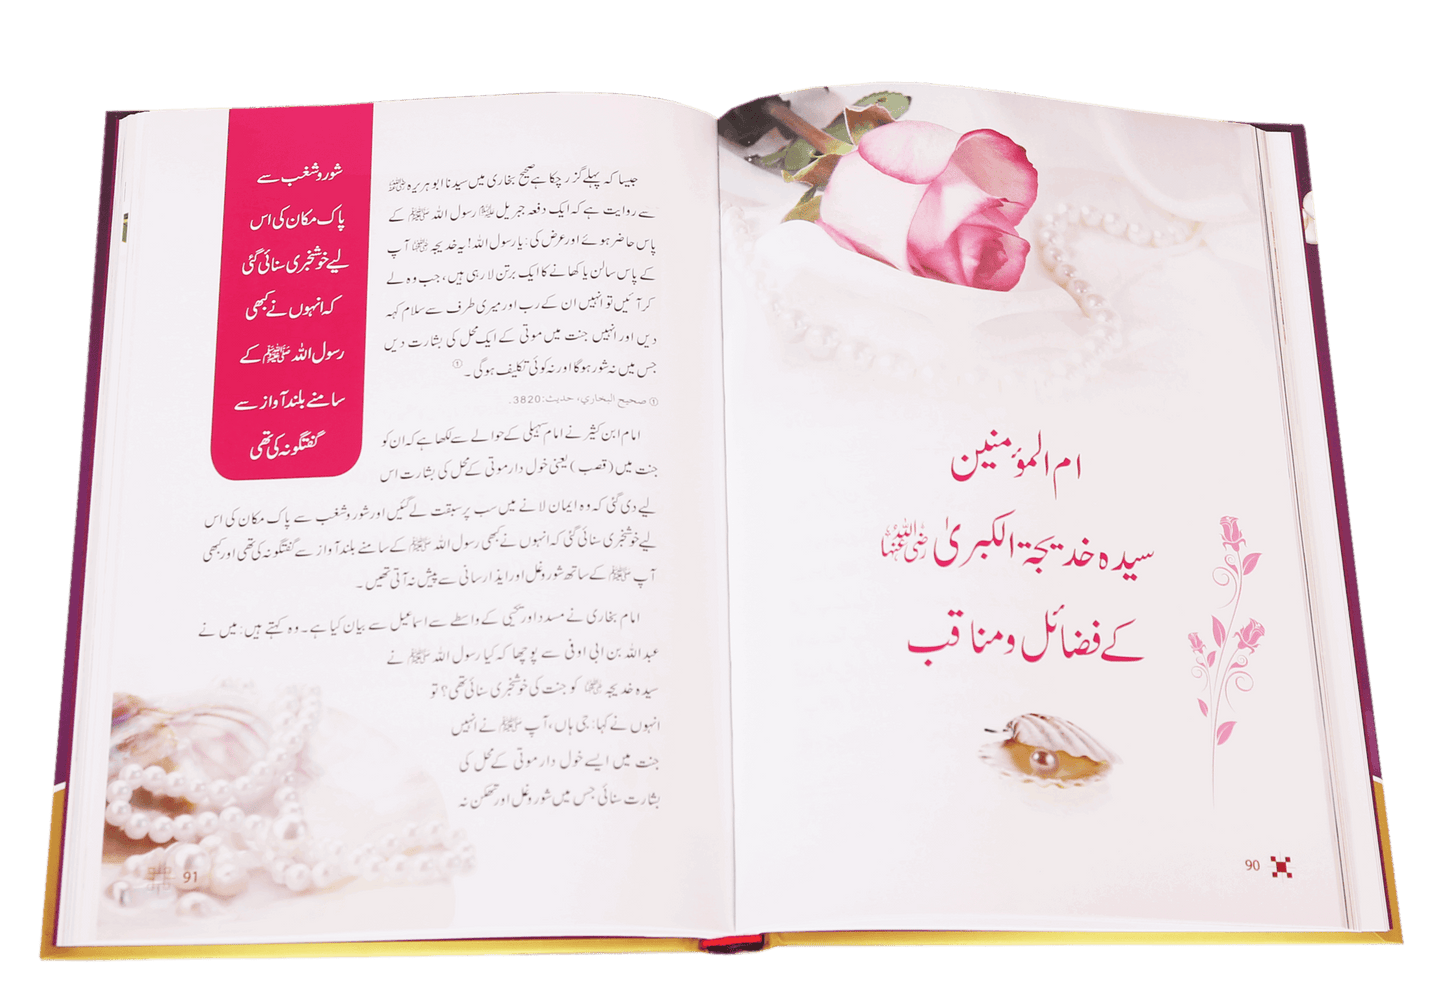 ام المؤمنین
سیدہ خدیجۃ الکبریٰ رضی اللہ عنہا
کے فضائل و مناقب
90
شور و شغب سے
پاک مکان کی اس
لیے خوشخبری سنائی گئی
کہ انہوں نے کبھی
رسول اللہ ﷺ کے
سامنے بلند آواز سے
گفتگو نہ کی تھی
جیسا کہ پہلے گزر چکا ہے صحیح بخاری میں سیدنا ابو ہریرہ رضی اللہ عنہ
سے روایت ہے کہ ایک دفعہ جبریل علیہ السلام رسول اللہ ﷺ کے
پاس حاضر ہوئے اور عرض کی: یا رسول اللہ! یہ خدیجہ رضی اللہ عنہا آپ
کے پاس سالن یا کھانے کا ایک برتن لا رہی ہیں، جب وہ لے
کر آئیں تو انہیں ان کے رب اور میری طرف سے سلام کہہ
دیں اور انہیں جنت میں موتی کے ایک محل کی بشارت دیں
جس میں نہ شور ہوگا اور نہ کوئی تکلیف ہوگی۔ ①
① صحیح البخاري، حدیث:3820.
امام ابن کثیر نے امام سہیلی کے حوالے سے لکھا ہے کہ ان کو
جنت میں (قصب) یعنی خول دار موتی کے محل کی بشارت اس
لیے دی گئی کہ وہ ایمان لانے میں سب پر سبقت لے گئیں اور شور و شغب سے پاک مکان کی اس
لیے خوشخبری سنائی گئی کہ انہوں نے کبھی رسول اللہ ﷺ کے سامنے بلند آواز سے گفتگو نہ کی تھی اور کبھی
آپ ﷺ کے ساتھ شور و غل اور ایذا رسانی سے پیش نہ آتی تھیں۔
امام بخاری نے مسدد اور یحیی کے واسطے سے اسماعیل سے بیان کیا ہے۔ وہ کہتے ہیں: میں نے
عبداللہ بن ابی اوفی سے پوچھا کہ کیا رسول اللہ ﷺ نے
سیدہ خدیجہ رضی اللہ عنہا کو جنت کی خوشخبری سنائی تھی؟ تو
انہوں نے کہا: جی ہاں، آپ ﷺ نے انہیں
جنت میں ایسے خول دار موتی کے محل کی
بشارت سنائی جس میں شور و غل اور تھکن نہ
91